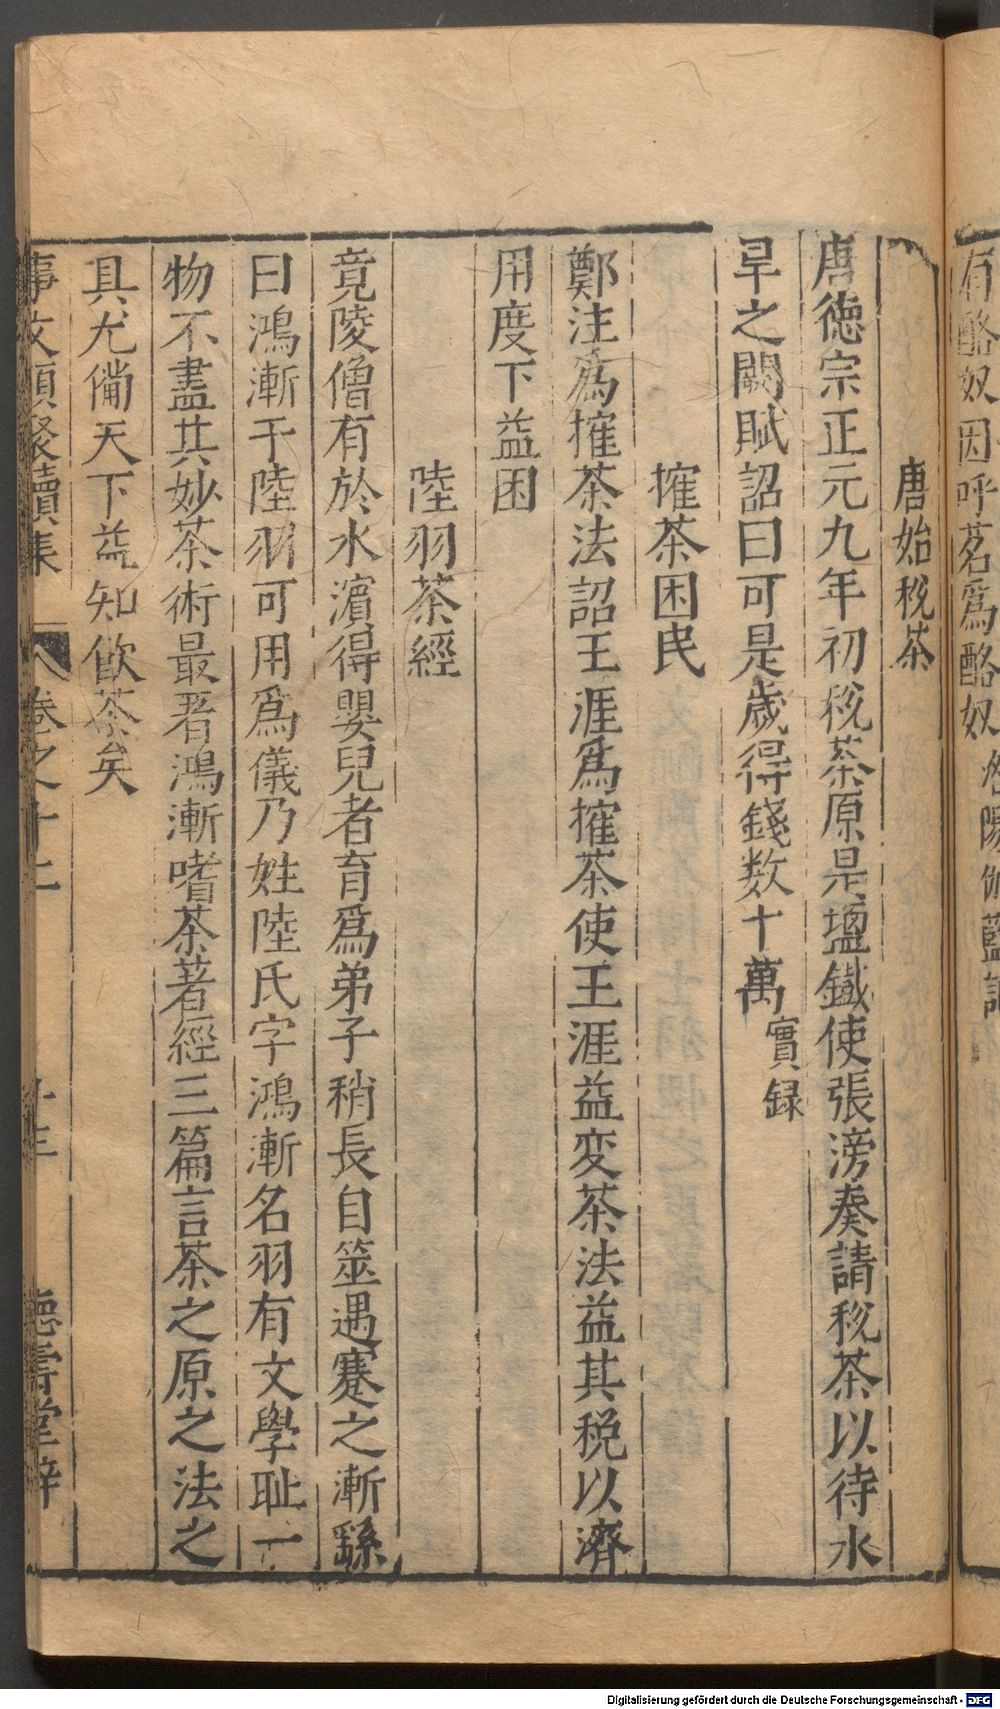 有酪奴因呼茗爲酪奴洛陽伽藍記
唐始稅茶
唐德宗正元九年初稅茶原是塩鐵使張滂奏請稅茶以待水
旱之闕賦詔曰可是歲得錢数十萬實録
搉茶困民
鄭注爲搉茶法詔王涯爲搉茶使王涯益变茶法益其稅以濟
用度下益困
陸羽茶經
竟陵僧有於水濵得嬰兒者育爲弟子稍長自筮遇蹇之漸繇
曰鴻漸于陸羽可用爲儀乃姓陸氏字鴻漸名羽有文學耻一
物不盡其妙茶術最著鴻漸嗜茶著經三篇言茶之原之法之
具尤僃天下益知飲茶矣
事文類聚續集 卷之十二 十三 德壽堂梓
Digitalisierung gefördert durch die Deutsche Forschungsgemeinschaft - DFG